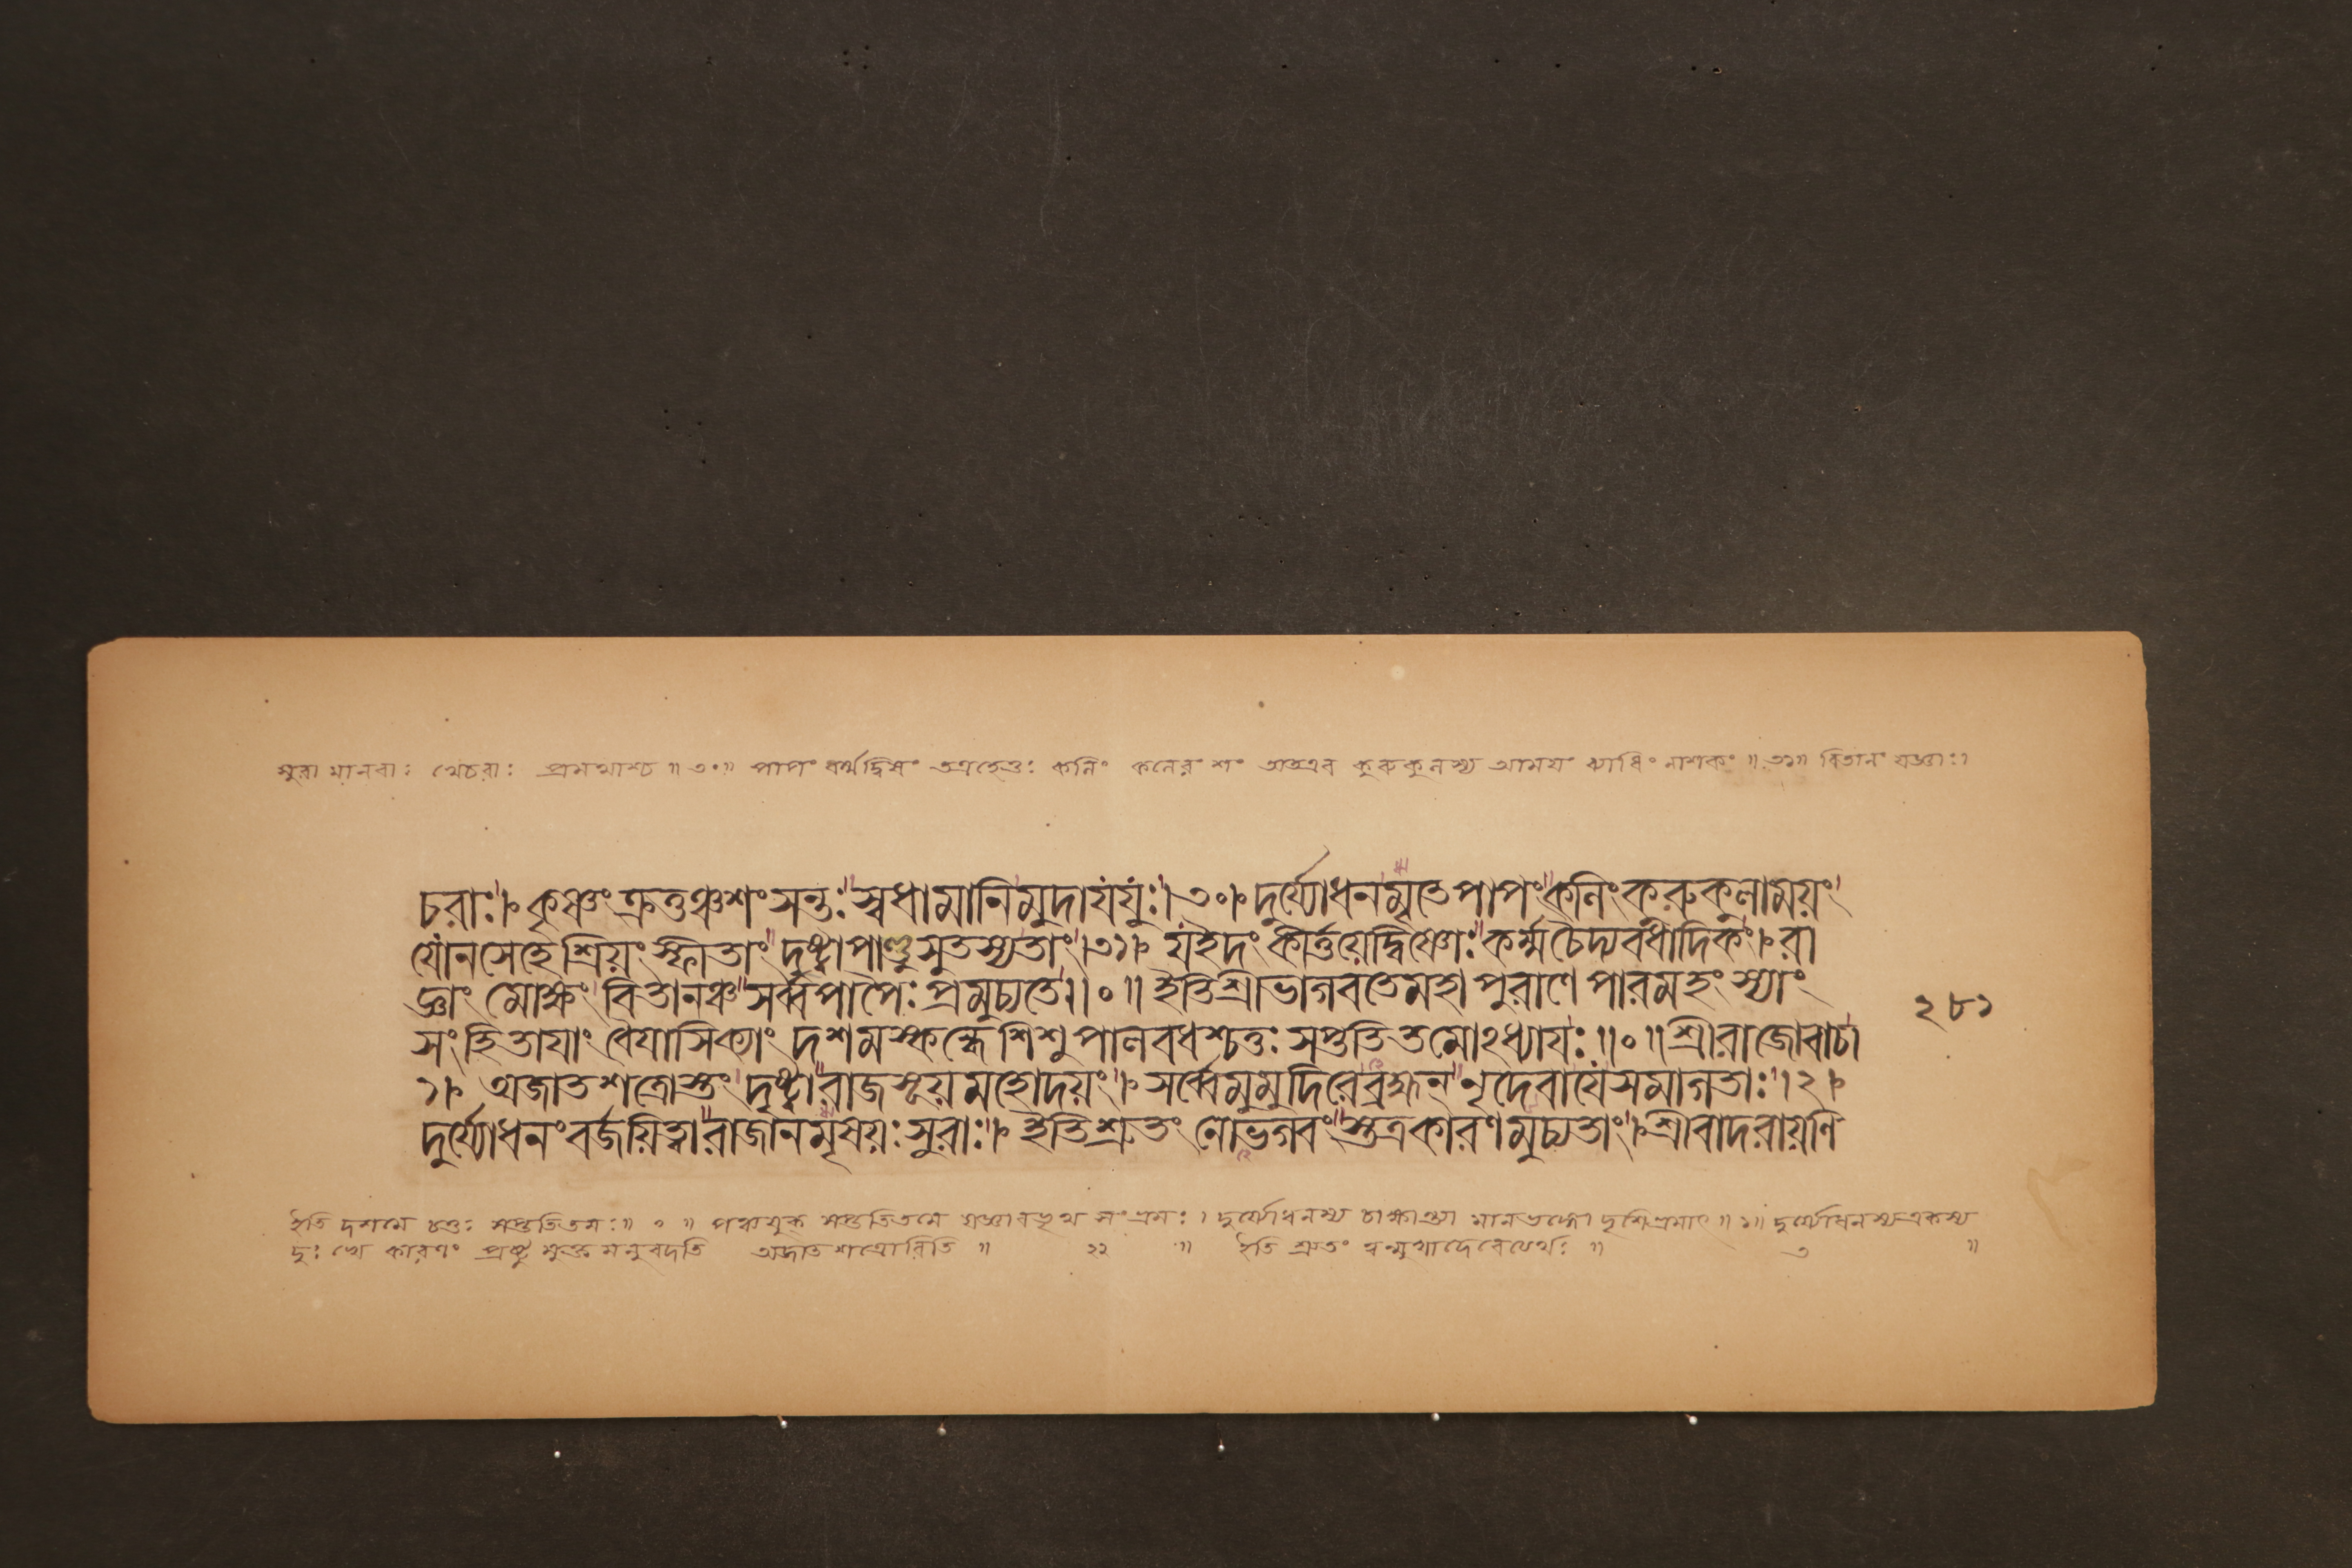 সুরা মানবাঃ খেচরাঃ প্রমথাশ্চ ॥ ৩০॥ পাপং ধর্ম্মদ্বিষং তত্রহেতুঃ কলিং কলেরংশং অতএব কুরুকুলস্য আময়ং ব্যাধিং নাশকং ॥ ৩১॥ বিতানং যজ্ঞাঃ।
চরাঃ। কৃষ্ণং ক্রতুঞ্চশংসন্তঃ স্বধামানিমুদাযযুঃ।৩০। দুর্য্যোধনমৃতেপাপংকলিংকরুকুলাময়ং
যোনসেহেশ্রিয়ংস্ফীতাং দৃষ্ট্বাপাণ্ডুসুতস্যতাং।৩১। যইদং কীর্ত্তয়েদ্বিষ্ণোঃকর্ম্মচৈদ্যবধাদিকং। রা
জ্ঞাং মোক্ষং বিতানঞ্চ সর্ব্বপাপৈঃ প্রমুচ্যতে॥০॥ ইতিশ্রীভাগবতেমহাপুরাণে পারমহংস্যাং
২৮১
সংহিতাযাং বৈযাসিক্যাং দশমস্কন্ধে শিশুপালবধশ্চতুঃ সপ্ততিতমোঽধ্যাযঃ॥০॥শ্রীরাজোবাচ
১। অজাতশত্রোস্তং দৃষ্ট্বারাজসূয়মহোদয়ং। সর্ব্বেমুমুদিরেব্রহ্মন্ নৃদেবাযেসমাগতাঃ।২।
দুর্য্যোধনংবর্জয়িত্বারাজানমৃষয়ঃসুরাঃ। ইতিশ্রুতং নোভগবংস্তত্রকারণমুচ্যতাং।শ্রীবাদরায়ণি
ইতি দশমে চতুঃ সপ্ততিতমঃ॥ ০ ॥ পঞ্চযুক্ সপ্ততিতমে যজ্ঞাবভৃথ সংভ্রমঃ। দুর্য্যোধনস্য মানভঙ্গো দৃশিভ্রমাৎ॥১॥ দুর্য্যোধনস্যএকস্য
দুঃখে কারণং প্রষ্টু মুক্ত মনুবদতি অজাত শত্রোরিতি ॥ ২২ ॥ ইতি শ্রুতং ত্বন্মুখাদেবেত্যর্থঃ ॥ ৩ ॥